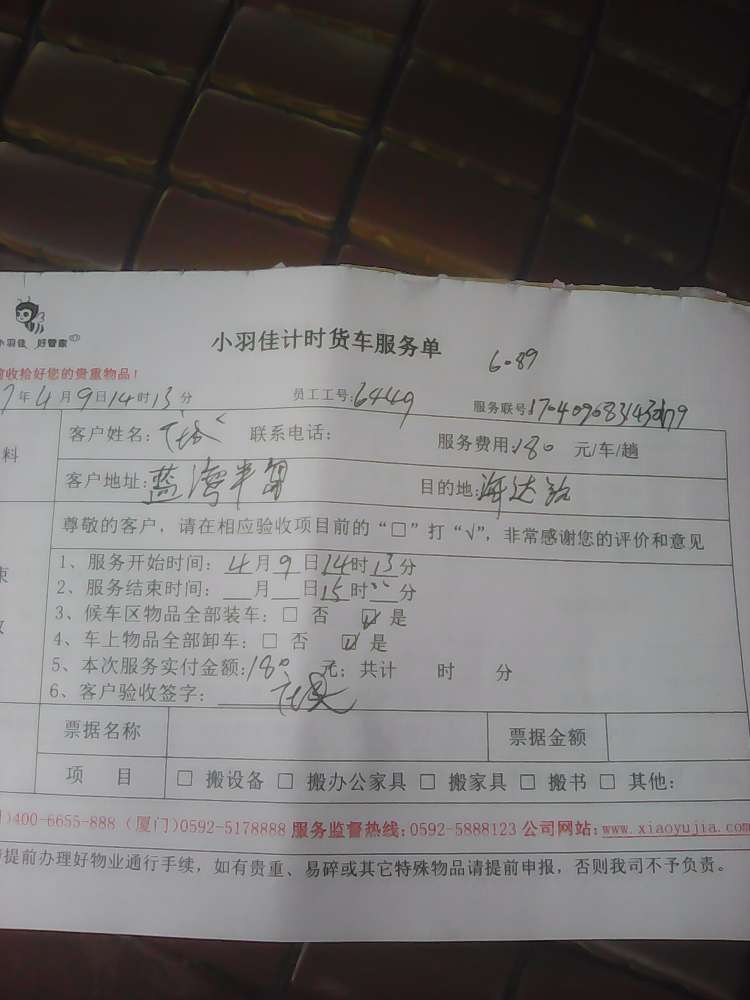 小羽佳 好管家
小羽佳计时货车服务单
6-89
验收拾好您的贵重物品！
7年4月9日14时13分 员工工号:6449 服务联号
料 客户姓名: 联系电话: 服务费用:180 元/车/趟
客户地址:蓝湾半岛 目的地:海达路
尊敬的客户，请在相应验收项目前的“□”打“√”，非常感谢您的评价和意见
1、服务开始时间：4月9日14时13分
2、服务结束时间：__月__日15时00分
3、候车区物品全部装车：□ 否 ☑ 是
4、车上物品全部卸车：□ 否 ☑ 是
5、本次服务实付金额:180 元；共计 时 分
6、客户验收签字：
票据名称 票据金额
项 目 □ 搬设备 □ 搬办公家具 □ 搬家具 □ 搬书 □ 其他:
)400-6655-888 (厦门)0592-5178888 服务监督热线:0592-5888123 公司网站:www.xiaoyujia.com
提前办理好物业通行手续，如有贵重、易碎或其它特殊物品请提前申报，否则我司不予负责。